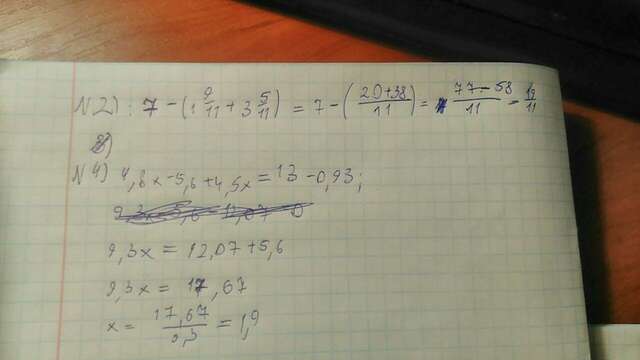 N2) : 7 - (1 9/11 + 3 5/11) = 7 - (20+38/11) = 77-58/11 = 19/11
3)
N4) 4,8x-5,6+4,5x=13-0,93;
9,3x = 12,07+5,6
9,3x = 17,67
x = 17,67/9,3 = 1,9